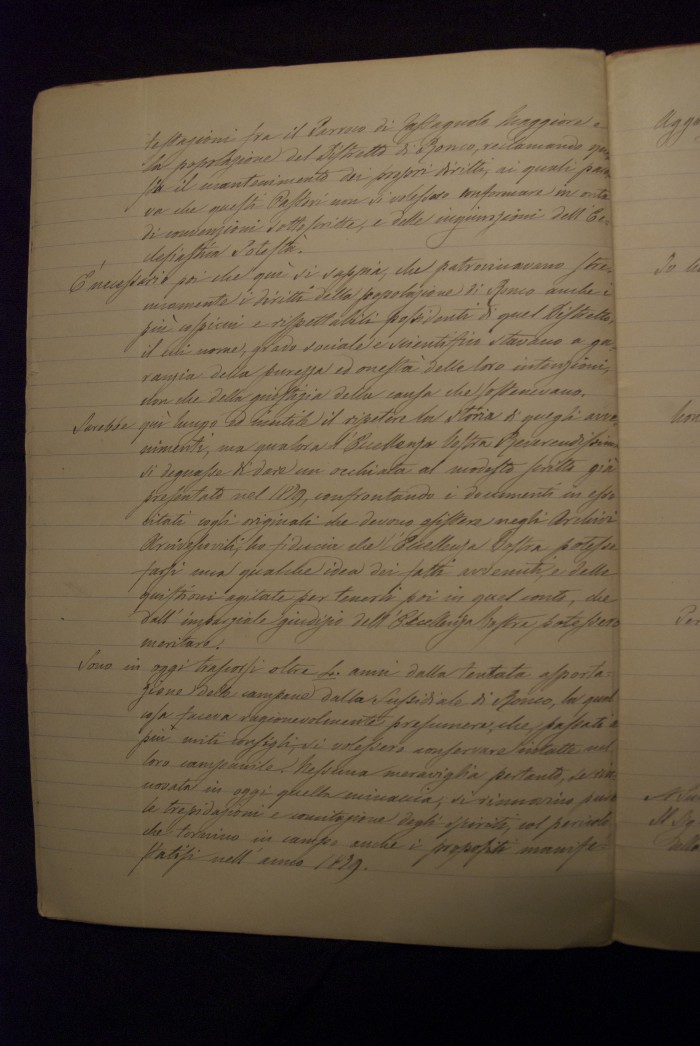 testazioni fra il Parroco di Castagnole Maggiore e
la popolazione del Distretto di Ronco, reclamando que-
sta il mantenimento dei propri diritti, ai quali pare-
va che questi Pastori non si volessero conformare in onta
di convenzioni sottoscritte, e delle ingiunzioni dell'Ec-
clesiastica Potestà.
È necessario poi che quì si sappia, che patrocinavano stre-
nuamente i diritti della popolazione di Ronco anche i
più cospicui e rispettabili possidenti di quel Distretto,
il cui nome, grado sociale e scientifico stavano a ga-
ranzia della purezza ed onestà delle loro intenzioni,
non che della giustizia della causa che sostenevano.
Sarebbe quì lungo ed inutile il ripetere la storia di quegli avve-
nimenti, ma qualora l'Eccellenza Vostra Reverendissima
si degnasse di dare un occhiata al modesto scritto già
presentato nel 1829, confrontando i documenti in esso
citati cogli originali che devono esistere negli Archivi
Arcivescovili, ho fiducia che l'Eccellenza Vostra potesse
farsi una qualche idea dei fatti avvenuti, e delle
quistioni agitate per tenerli poi in quel conto, che
dall'imparziale giudizio dell'Eccellenza Vostra potessero
meritare.
Sono in oggi trascorsi oltre anni dalla tentata asporta-
zione delle campane dalla Sussidiale di Ronco, la qual
cosa faceva ragionevolmente presumere, che, passate a
più miti consigli, si volessero conservare intatte nel
loro campanile. Nessuna meraviglia pertanto, se rin-
novata in oggi quella minaccia, si rinnovino pure
le trepidazioni e concitazione degli spiriti, col pericolo
che tornino in campo anche i propositi manife-
statisi nell'anno 1829.